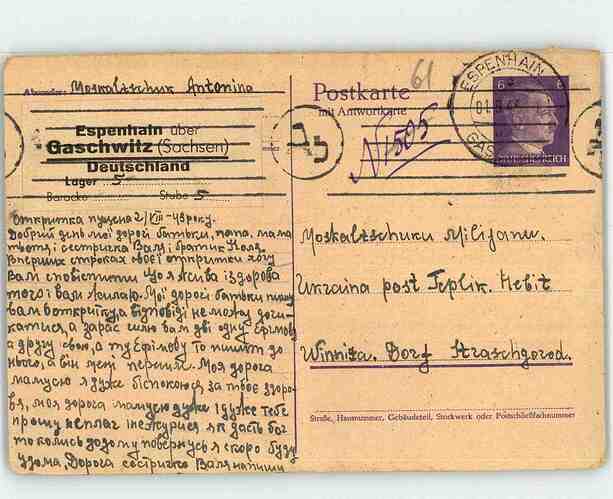 Absender: Moskaltschuk Antonina
Espenhain über
Gaschwitz (Sachsen)
Deutschland
Lager 5
Baracke Stube 5
Открытка пущена 2/VIII-43 року.
Добрий день мої дорогі батьки, папа, мама
тьотя і сестричка Валя і братик Коля.
Вперших строках своєї открытки хочу
Вам сповістити що я жива і здорова
того і вам желаю. Мої дорогі батьки пишу
вам воткритку, а відповіді не можу дочи-
катися, а зараз шлю вам дві одну Єфімову
а другу свою, а ту Єфімову то пишіт до
нього, а він мені перешле. Моя дорога
мамусю я дуже біспокоюсь за твоє здоро-
вя, моя дорога мамусю дуже і дуже тебе
прошу неплач інежурися як дасть бог
то колись додому повернусь я скоро буду
удома, Дорога состричко Валя напиши
Postkarte
mit Antwortkarte
61
N 1505
ESPENHAIN
6 6
DEUTSCHES REICH
Moskaltschuku Milijanu.
Ukraina post Teplik. Hebit
Winniza. Dorf Straschgorod.
Straße, Hausnummer, Gebäudeteil, Stockwerk oder Postschließfachnummer